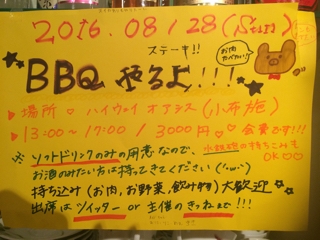 2016.08/28(Sun)
ステーキ!!
お肉たべたい!!
BBQ やるよ!!!
場所 ♡ ハイウェイオアシス(小布施)
13:00〜17:00 / 3000円 ♡♡ 会費です!!!
※ ソフトドリンクのみの用意なので、
お酒のみたい方は持ってきてください
持ちこみも
OK♡♡
持ち込み(お肉、お野菜、飲み物)大歓迎
出席はツイッター or 主催のきつねまで!!!